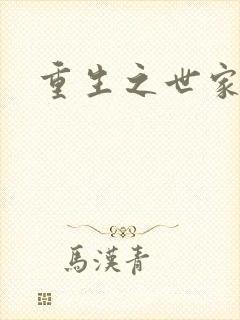 重生之世家
馬漢青